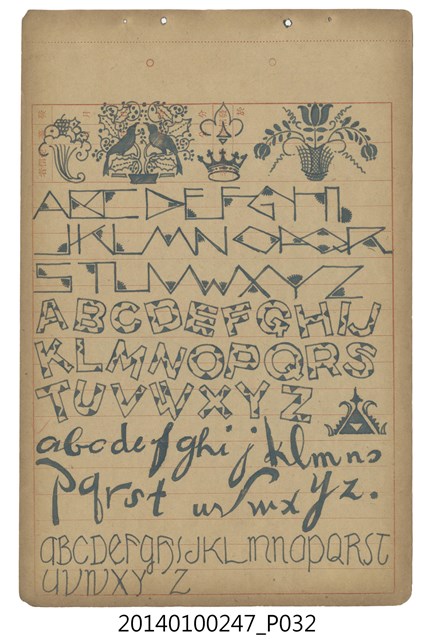 ABCDEFGHI
JKLMNOPQR
STUVWXYZ
ABCDEFGHIJ
KLMNOPQRS
TUVWXYZ
abcdefghijklmno
pqrstuvwxyz.
ABCDEFGHIJKLMNOPQRST
UVWXYZ
20140100247_P032